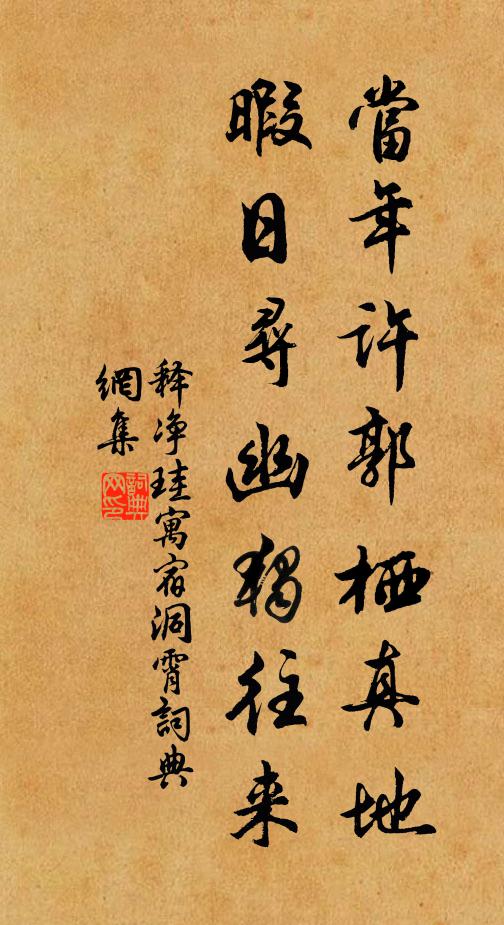 當年許郭栖真地
暇日尋幽獨往来
釋净珪寓宿洞霄詞典
網集
詞典网印